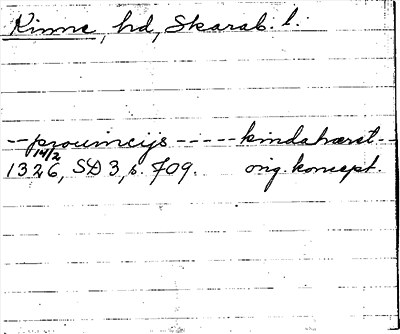 Kinne, hd, Skarab. l.
-- prouincijs ----- kindahæret --
14/2
1326, SD 3, s. 709. orig. koncept.